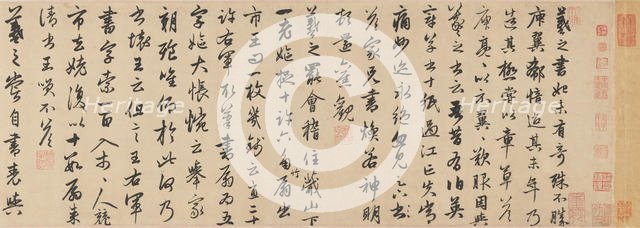 羲之書始未有奇殊不勝
庾翼郗愔迨其末年乃
造其極嘗以章草答
庾亮亮以示翼翼歎服因與
羲之書云吾昔有伯英
章草書十紙過江亡失常
痛妙迹永絕忽見足下答
家兄書煥若神明
頓還舊觀
羲之罷會稽住蕺山下
一老嫗捉十許六角竹扇出
市王問一枚幾錢云直二十
許右軍取筆書扇扇為五
字嫗大悵惋云舉家
朝飧惟仰於此何乃
書壞王云但言王右軍
書字索一百入市人競
市去姥復以十數扇來
請書王笑不答
羲之嘗自書表與
heritage-images